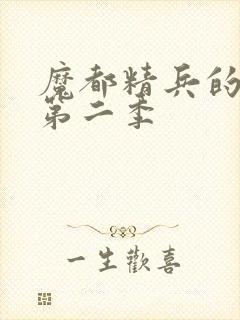 魔都精兵的
第二季
一生歡喜